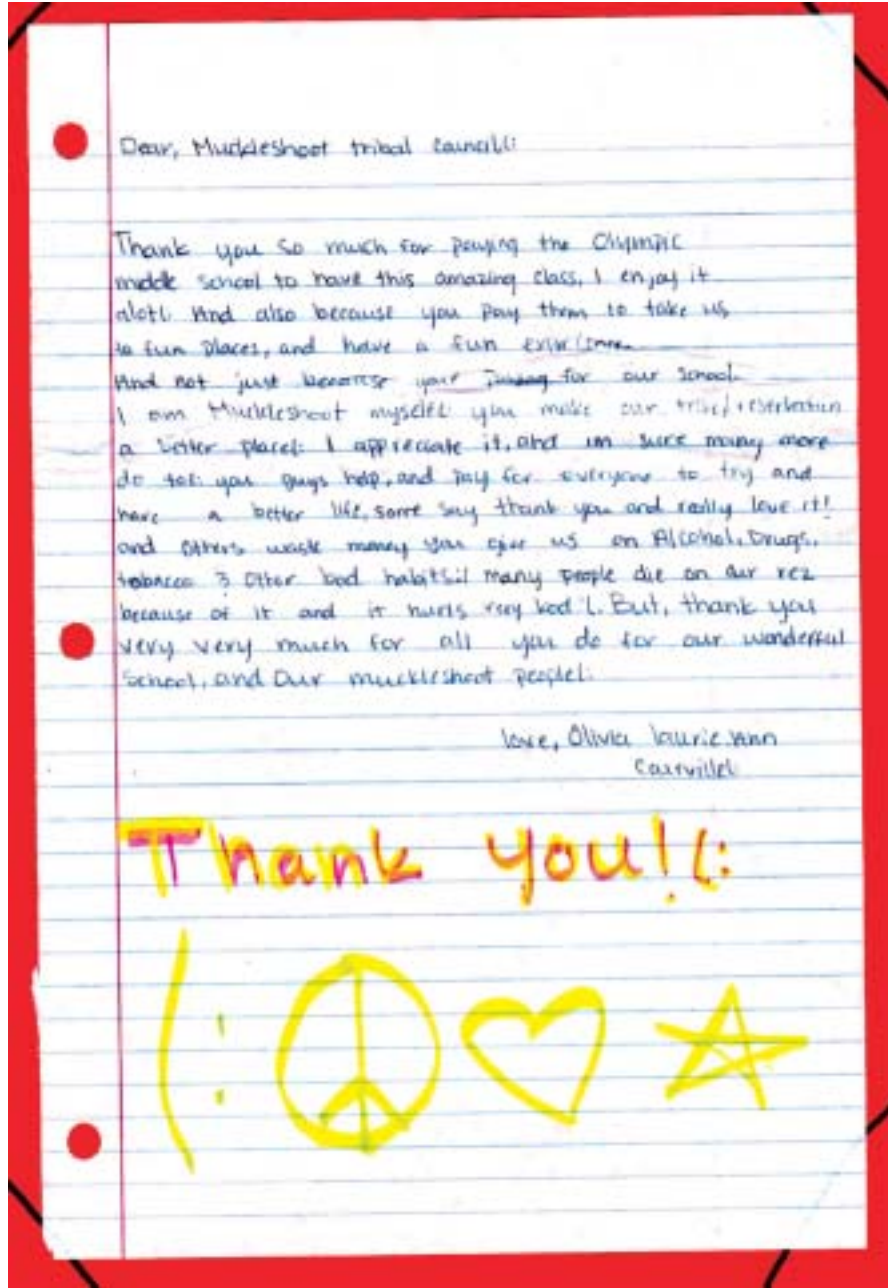 Dear, Muckleshoot tribal Council(:
Thank you so much for paying the Olympic
middle school to have this amazing class, I enjoy it
alot(: And also because you pay them to take us
to fun places, and have a fun
And not just because your for our school.
I am Muckleshoot myself(: you make our tribe/reservation
a better place(: I appreciate it, and im sure many more
do to(: you guys help, and pay for everyone to try and
have a better life, some say thank you and really love it!
and others waste money you give us on Alcohol, Drugs,
tobacco & Other bad habits(: many people die on our rez
because of it and it hurts very bad ): But, thank you
very very much for all you do for our wonderful
School, and Our muckleshoot people(:
love, Olivia laurie Ann
Courville(:
Thank you!(:
(: